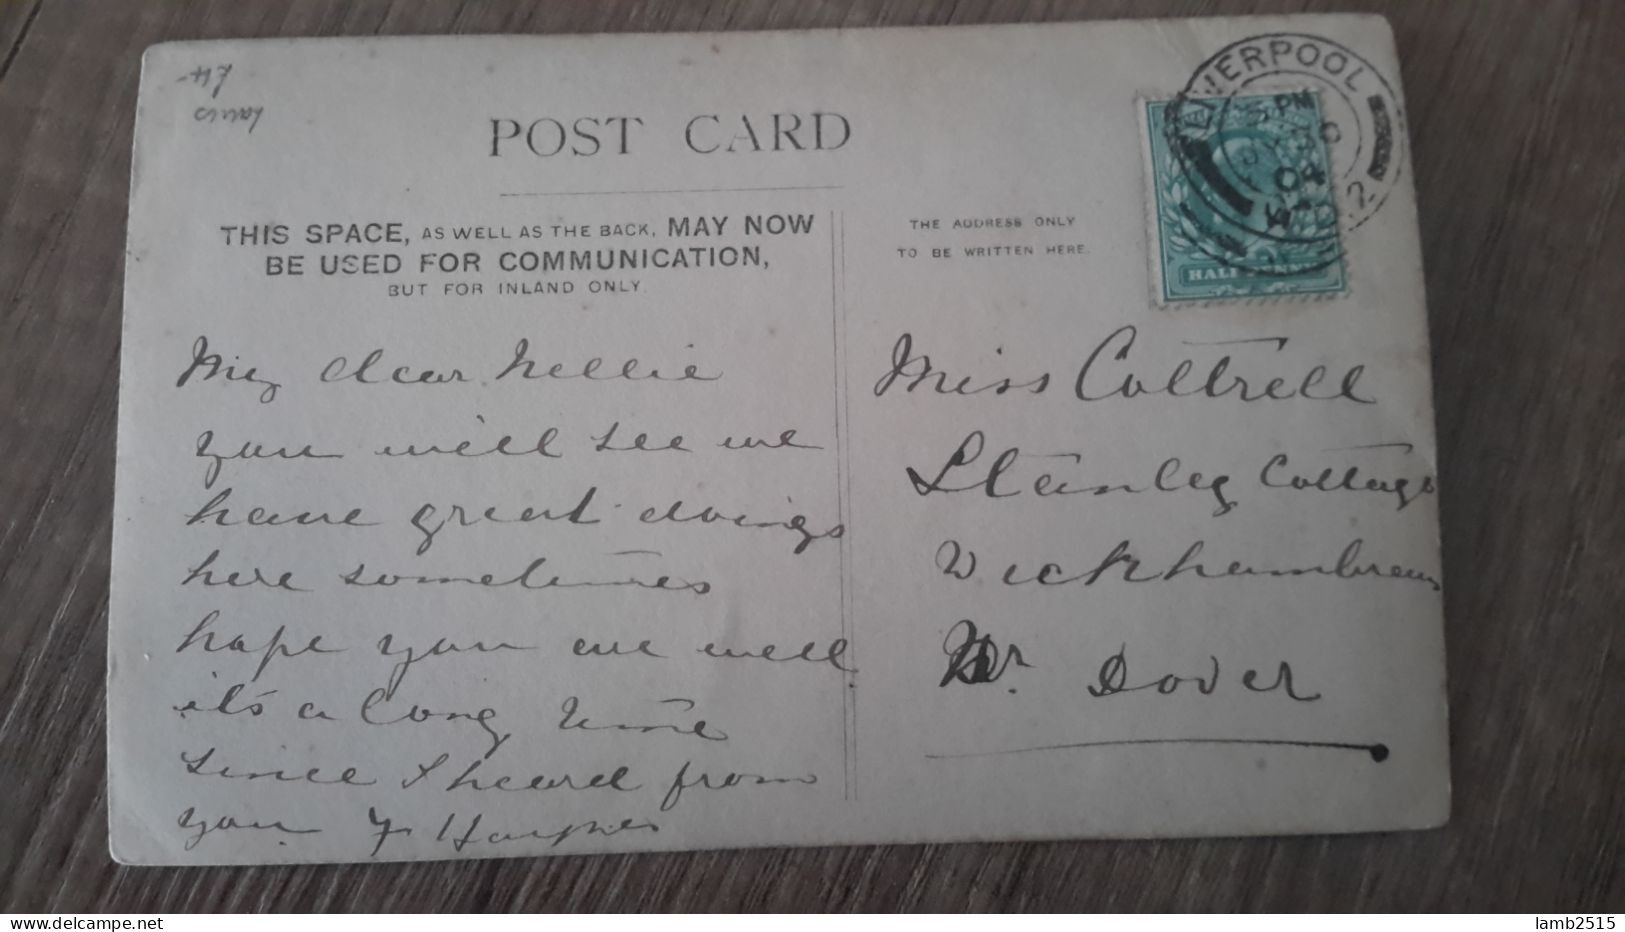 £4-
POST CARD
THIS SPACE, AS WELL AS THE BACK, MAY NOW
BE USED FOR COMMUNICATION,
BUT FOR INLAND ONLY.
THE ADDRESS ONLY
TO BE WRITTEN HERE.
LIVERPOOL
PM
04
2
HALFPENNY
My dear Nellie
you will see we
have great doings
here sometimes
hope you are well
it's a long time
since I heard from
you
Miss Cottrell
Stanley Cottage
Wickhambreaux
Nr. Dover
delcampe.net
lamb2515